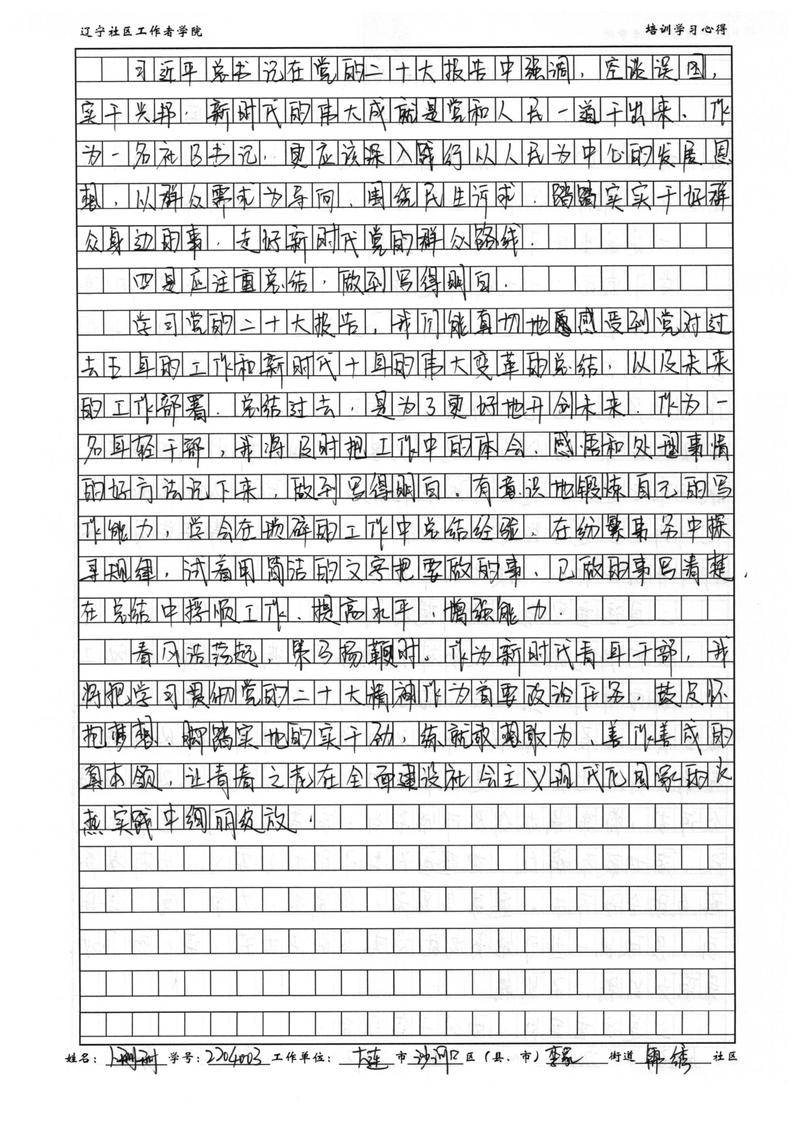 辽宁社区工作者学院 培训学习心得
习近平总书记在党的二十大报告中强调，空谈误国，
实干兴邦，新时代的伟大成就是党和人民一道干出来、作
为一名社区书记，更应该深入践行以人民为中心的发展思
想，以群众需求为导向，围绕民生诉求，踏踏实实干好群
众身边的事，走好新时代党的群众路线．
四是应注重总结，做到写得明白．
学习党的二十大报告，我们能真切地感受到党对过
去五年的工作和新时代十年的伟大变革的总结，以及未来
的工作部署．总结过去，是为了更好地开创未来．作为一
名年轻干部，我将及时把工作中的体会、感悟和处理事情
的好方法记下来，做到写得明白．有意识地锻炼自己的写
作能力，学会在琐碎的工作中总结经验．在纷繁事务中探
寻规律，试着用简洁的文字把要做的事、已做的事写清楚，
在总结中捋顺工作、提高水平、增强能力．
春风浩荡起，策马扬鞭时。作为新时代青年干部，我
将把学习贯彻党的二十大精神作为首要政治任务，鼓足怀
抱梦想、脚踏实地的实干劲，练就敢想敢为、善作善成的
真本领，让青春之花在全面建设社会主义现代化国家的火
热实践中绚丽绽放．
姓名： 学号：2204003 工作单位： 大连 市 沙河口 区（县、市） 李家 街道 锦绣 社区